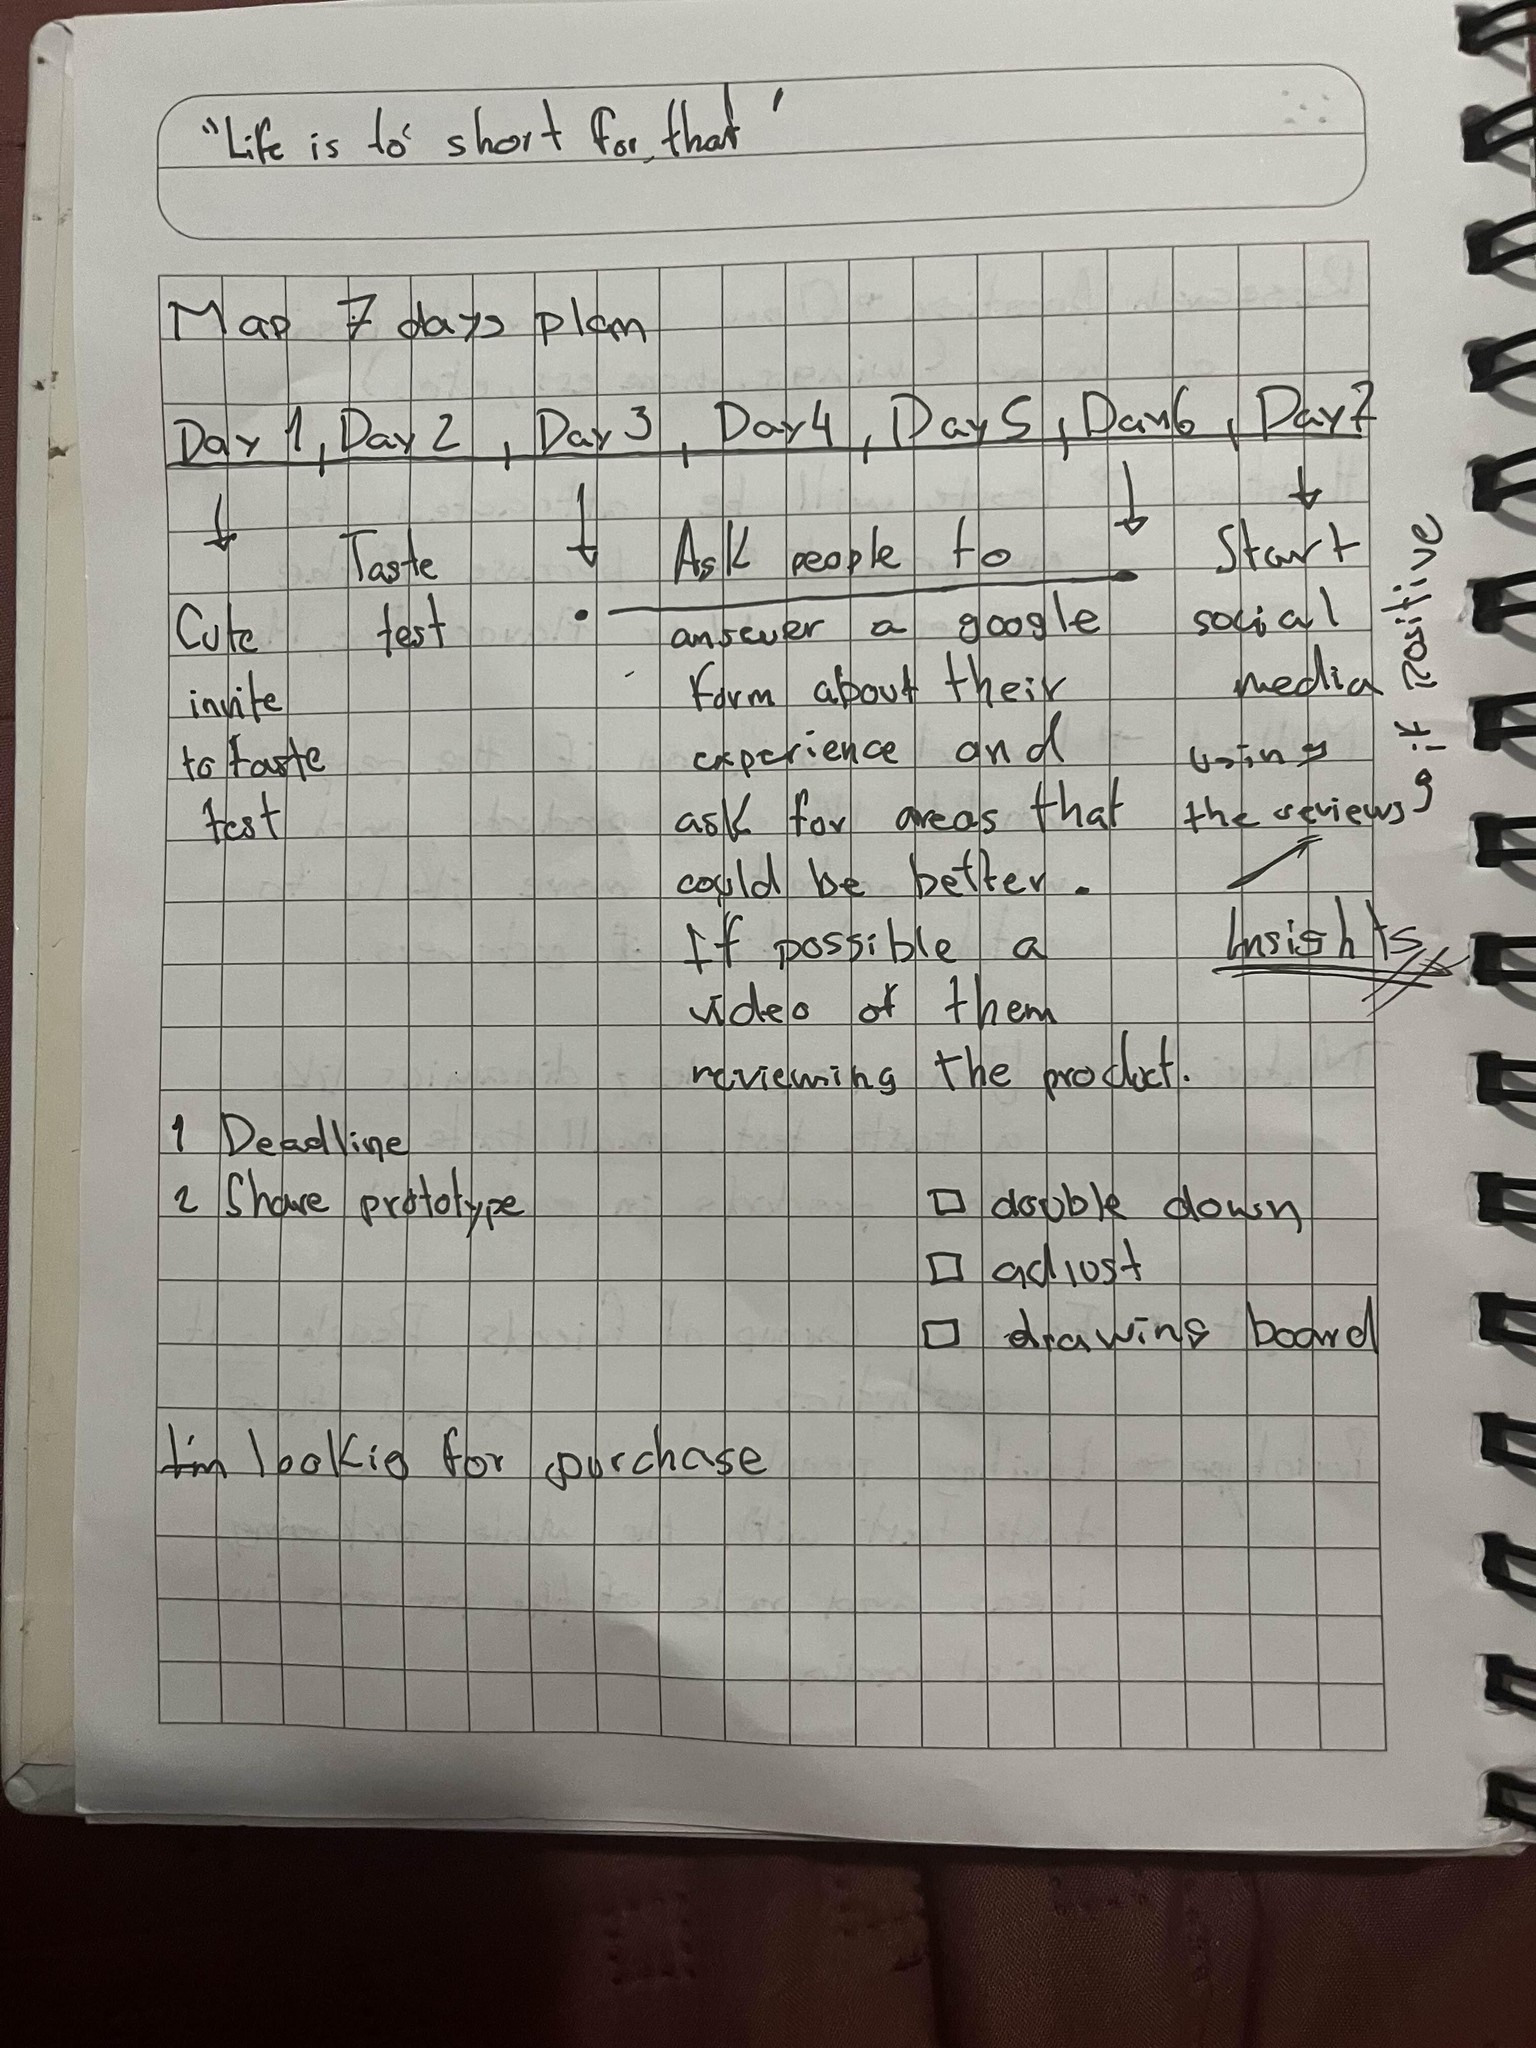 "Life is to short for that"
Map 7 days plan
Day 1, Day 2, Day 3, Day 4, Day 5, Day 6, Day 7
Cute
invite
to taste
test
Taste
test
Ask people to
answer a google
form about their
experience and
ask for areas that
could be better.
If possible a
video of them
reviewing the product.
Start
social
media
using
the reviews, if positive
Insights
1 Deadline
2 Share prototype
double down
adjust
drawing board
I'm lookig for purchase